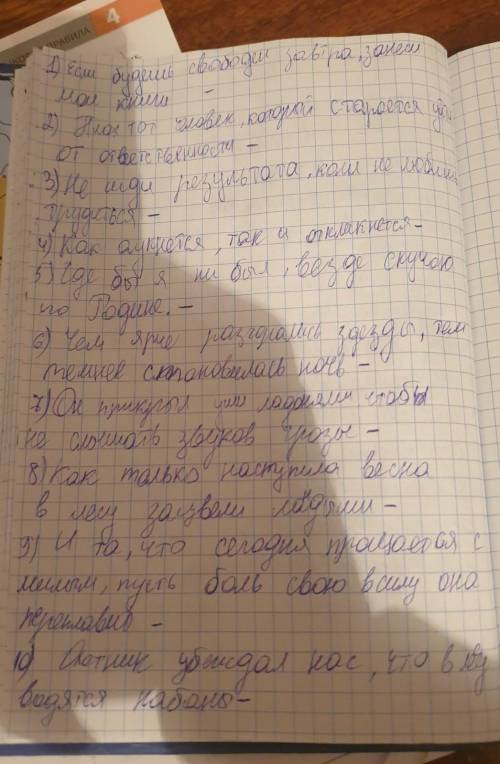 ПРАВИЛА 4
1) Если будешь свободен завтра, занеси
мои книги -
2) Плох тот человек, который старается уйти
от ответственности -
3) Не жди результата, коли не любишь
трудиться -
4) Как аукнется, так и откликнется -
5) Где бы я ни был, везде скучаю
по Родине. -
6) Чем ярче разгорались звезды, тем
темнее становилась ночь -
7) Он прикрыл уши ладонями чтобы
не слышать звуков грозы -
8) Как только наступила весна
в лесу зацвели -
9) И та, что сегодня прощается с
милым, пусть боль свою в силу она
переплавит -
10) Охотник убеждал нас, что в
водятся кабаны -